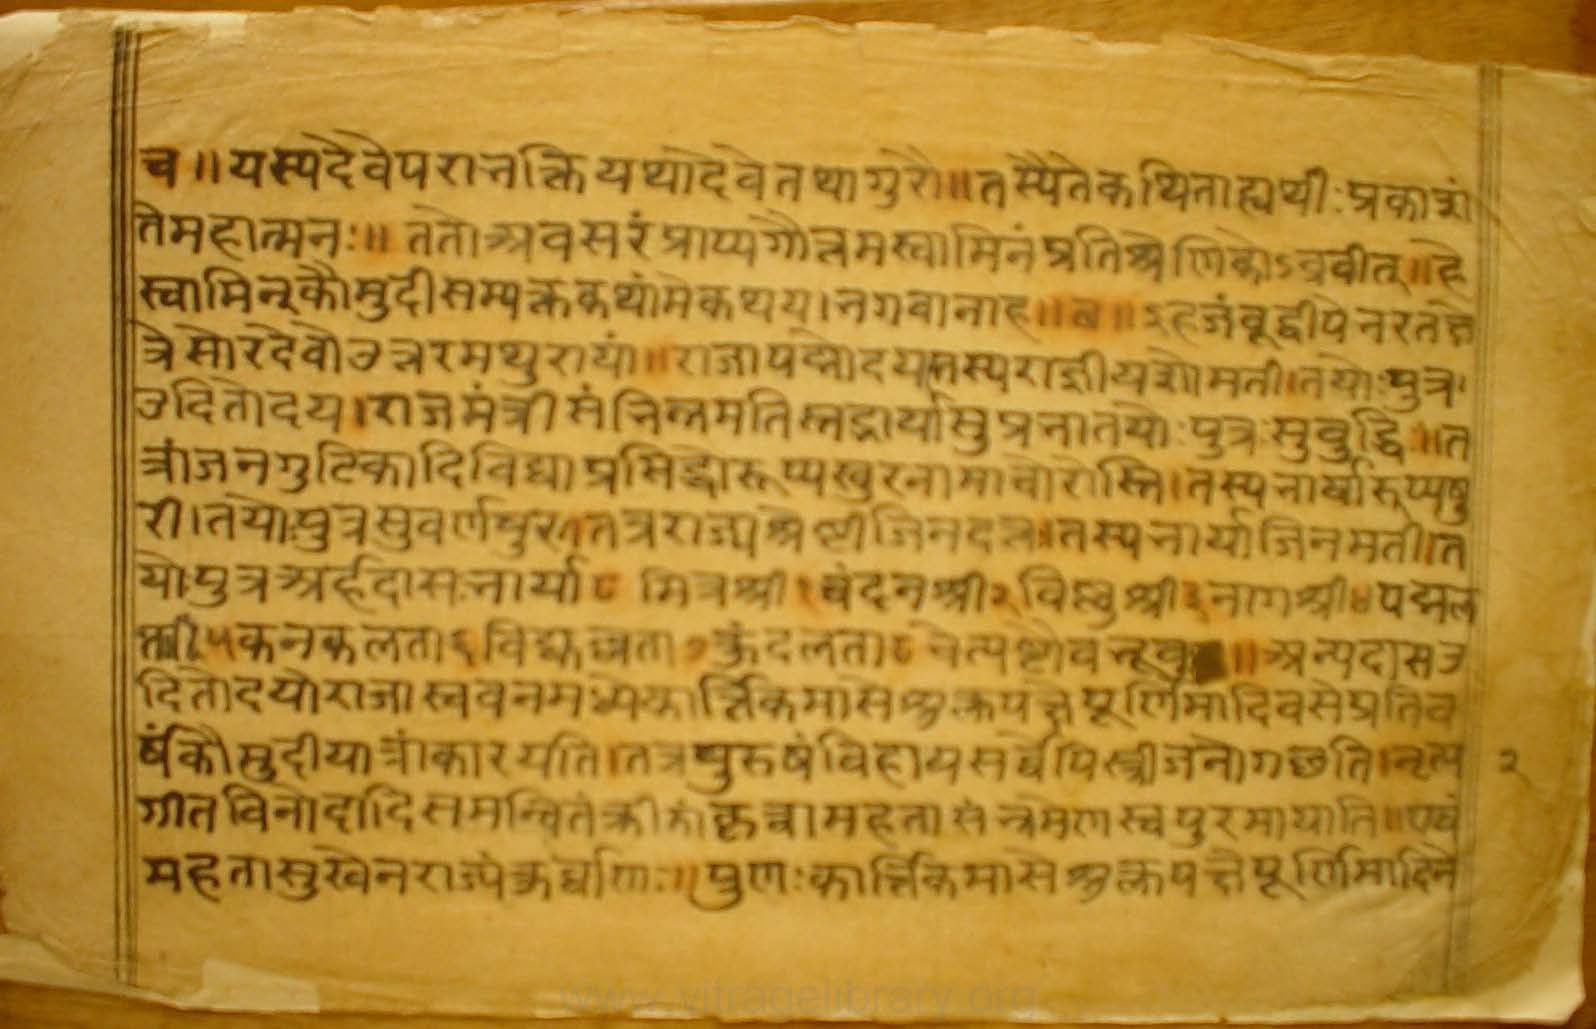 च॥यस्यदेवेपराभक्तिर्यथादेवेतथागुरौ॥तस्यैतेकथिताह्यर्थाःप्रकाशं
तेमहात्मनः॥ततोअवसरंप्राप्यगौतमस्वामिनंप्रतिश्रेणिकोऽब्रवीत्॥हे
स्वामिन्कौमुदीसम्यक्तकथांमेकथय।भगवानाह॥ ॥इहजंबूद्वीपेभरतक्षे
त्रेसोरदेशेउत्तरमथुरायां॥राजापद्मोदयस्तस्यराज्ञीयशोमती।तयोःपुत्रः
उदितोदय।राजमंत्रीसंभिन्नमतिस्तद्भार्यासुप्रभातयोःपुत्रःसुबुद्धि॥त
त्रांजनगुटिकादिविद्याप्रसिद्धोरूप्यखुरनामाचोरोस्ति।तस्यभार्यारूप्यषु
री।तयोःपुत्रसुवर्णषुर।तत्रराज्यश्रेष्ठीजिनदत्त।तस्यभार्याजिनमती॥त
योःपुत्रअर्हदासःभार्या८मित्रश्री१चंदनश्री२विष्णुश्री३नागश्री४पद्मल
ता५कनकलता६विद्युल्लता७कुंदलता८चेत्यष्टौबभूवु॥अन्यदास उ
दितोदयोराजास्ववनमध्येकार्त्तिकमासेशुक्लपक्षेपूर्णिमादिवसेप्रतिव
र्षंकौमुदीयात्रांकारयति।तत्रपुरुषंविहायसर्वेपिस्त्रीजनोगछति।नृत्य
२
गीतविनोदादिसमन्वितंक्रीडांकृत्वामहतासंभ्रमेणस्वपुरमायाति॥एवं
महतासुखेनराज्यं पुणःकार्त्तिकमासेशुक्लपक्षेपूर्णिमादिने
www.vitragelibrary.org